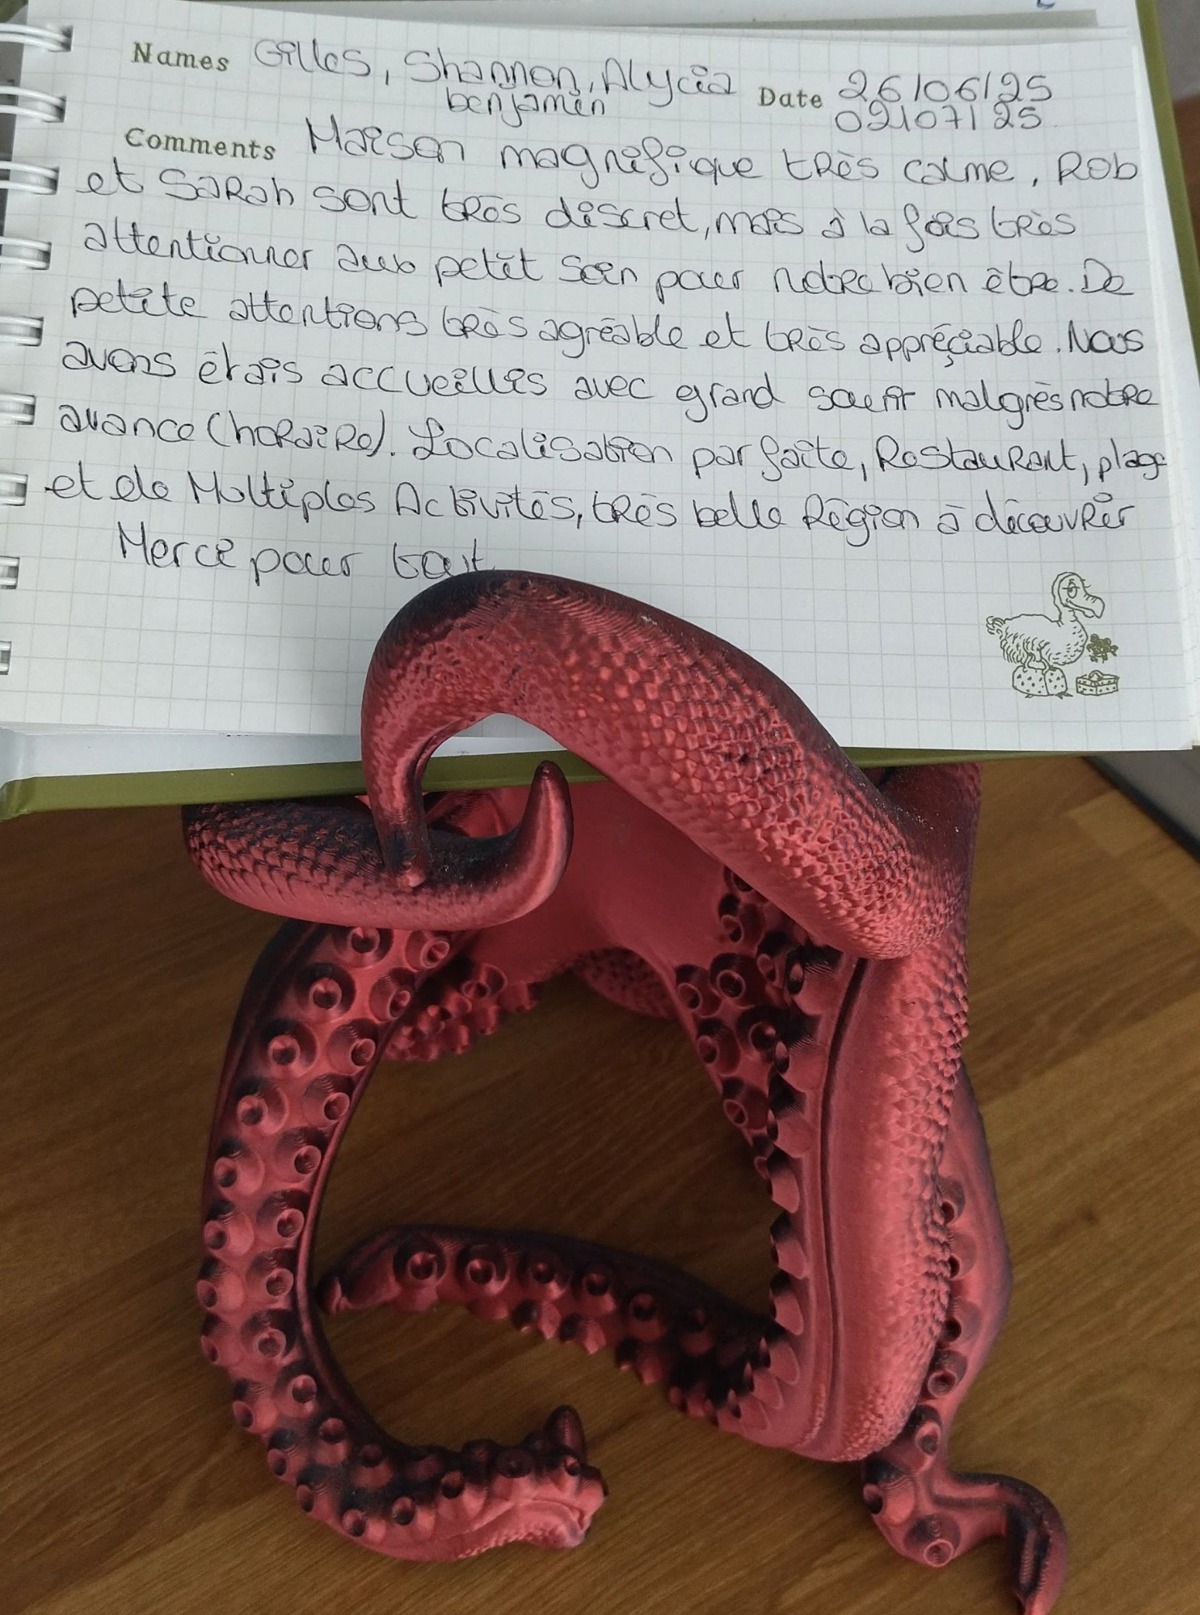 Names Gilles, Shannon, Alycia Date 26/06/25
benjamin 09/07/25
Comments Maison magnifique très calme, Rob
et Sarah sont très discret, mais à la fois très
attentionner aux petit soin pour notre bien être. De
petite attentions très agréable et très appréçiable. Nous
avons étais accueillis avec grand sourir malgrès notre
avance (horaire). Localisation parfaite, Restaurant, plage
et de Multiples Activités, très belle Région à découvrir
Merci pour tout